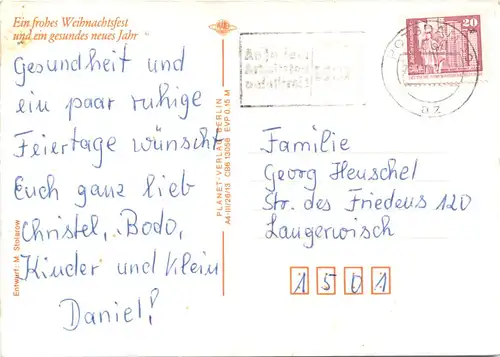 Ein frohes Weihnachtsfest
und ein gesundes neues Jahr
Gesundheit und
ein paar ruhige
Feiertage wünscht
Euch ganz lieb
Christel, Bodo,
Kinder und Klein
Daniel!
Entwurf: M. Stolarow
PLANET-VERLAG BERLIN
A4-III/26/13 C86 13056 EVP 0,15 M
20
Familie
Georg Heuschel
Str. des Friedens 120
Langerwisch
1501